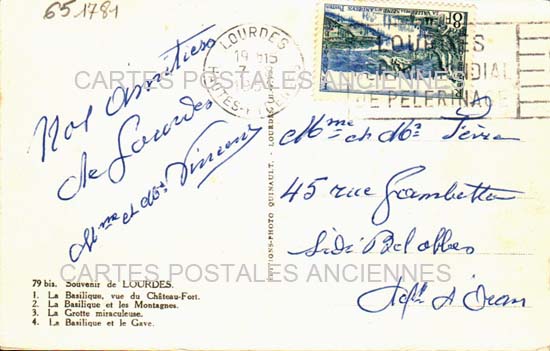 651781
LOURDES
19 H15
HAUTES-PYRÉNÉES
8F
LOURDES
MONDIAL
DE PELERINAGE
CARTES POSTALES ANCIENNES
Nos Amitiés
de Lourdes
Mme et Mr Vincent
Mme et Mr
45 rue Gambetta
Sidi Bel abbes
Dept d'Oran
EDITIONS-PHOTO QUINAULT. - LOURDES
CARTES POSTALES ANCIENNES
79 bis. Souvenir de LOURDES.
1. La Basilique, vue du Château-Fort.
2. La Basilique et les Montagnes.
3. La Grotte miraculeuse.
4. La Basilique et le Gave.